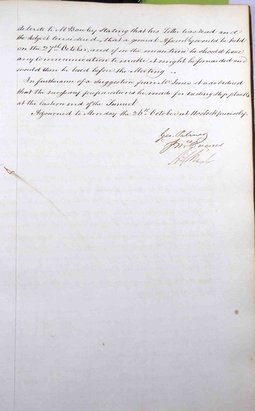 to write to Mr Bousley stating that his Letter was read and
the subject considered, that a general Assembly would be held
on the 27th October, and if in the meantime he should have
any communication to make it might be forwarded and
would then be laid before the Meeting
In furtherance of a suggestion from Mr Jones it was ordered
that the necessary preparations be made for landing Ship planks
at the Eastern end of the Tunnel
Adjourned to Monday the 26th October at 11 o'clock precisely.
Geo. Palmer